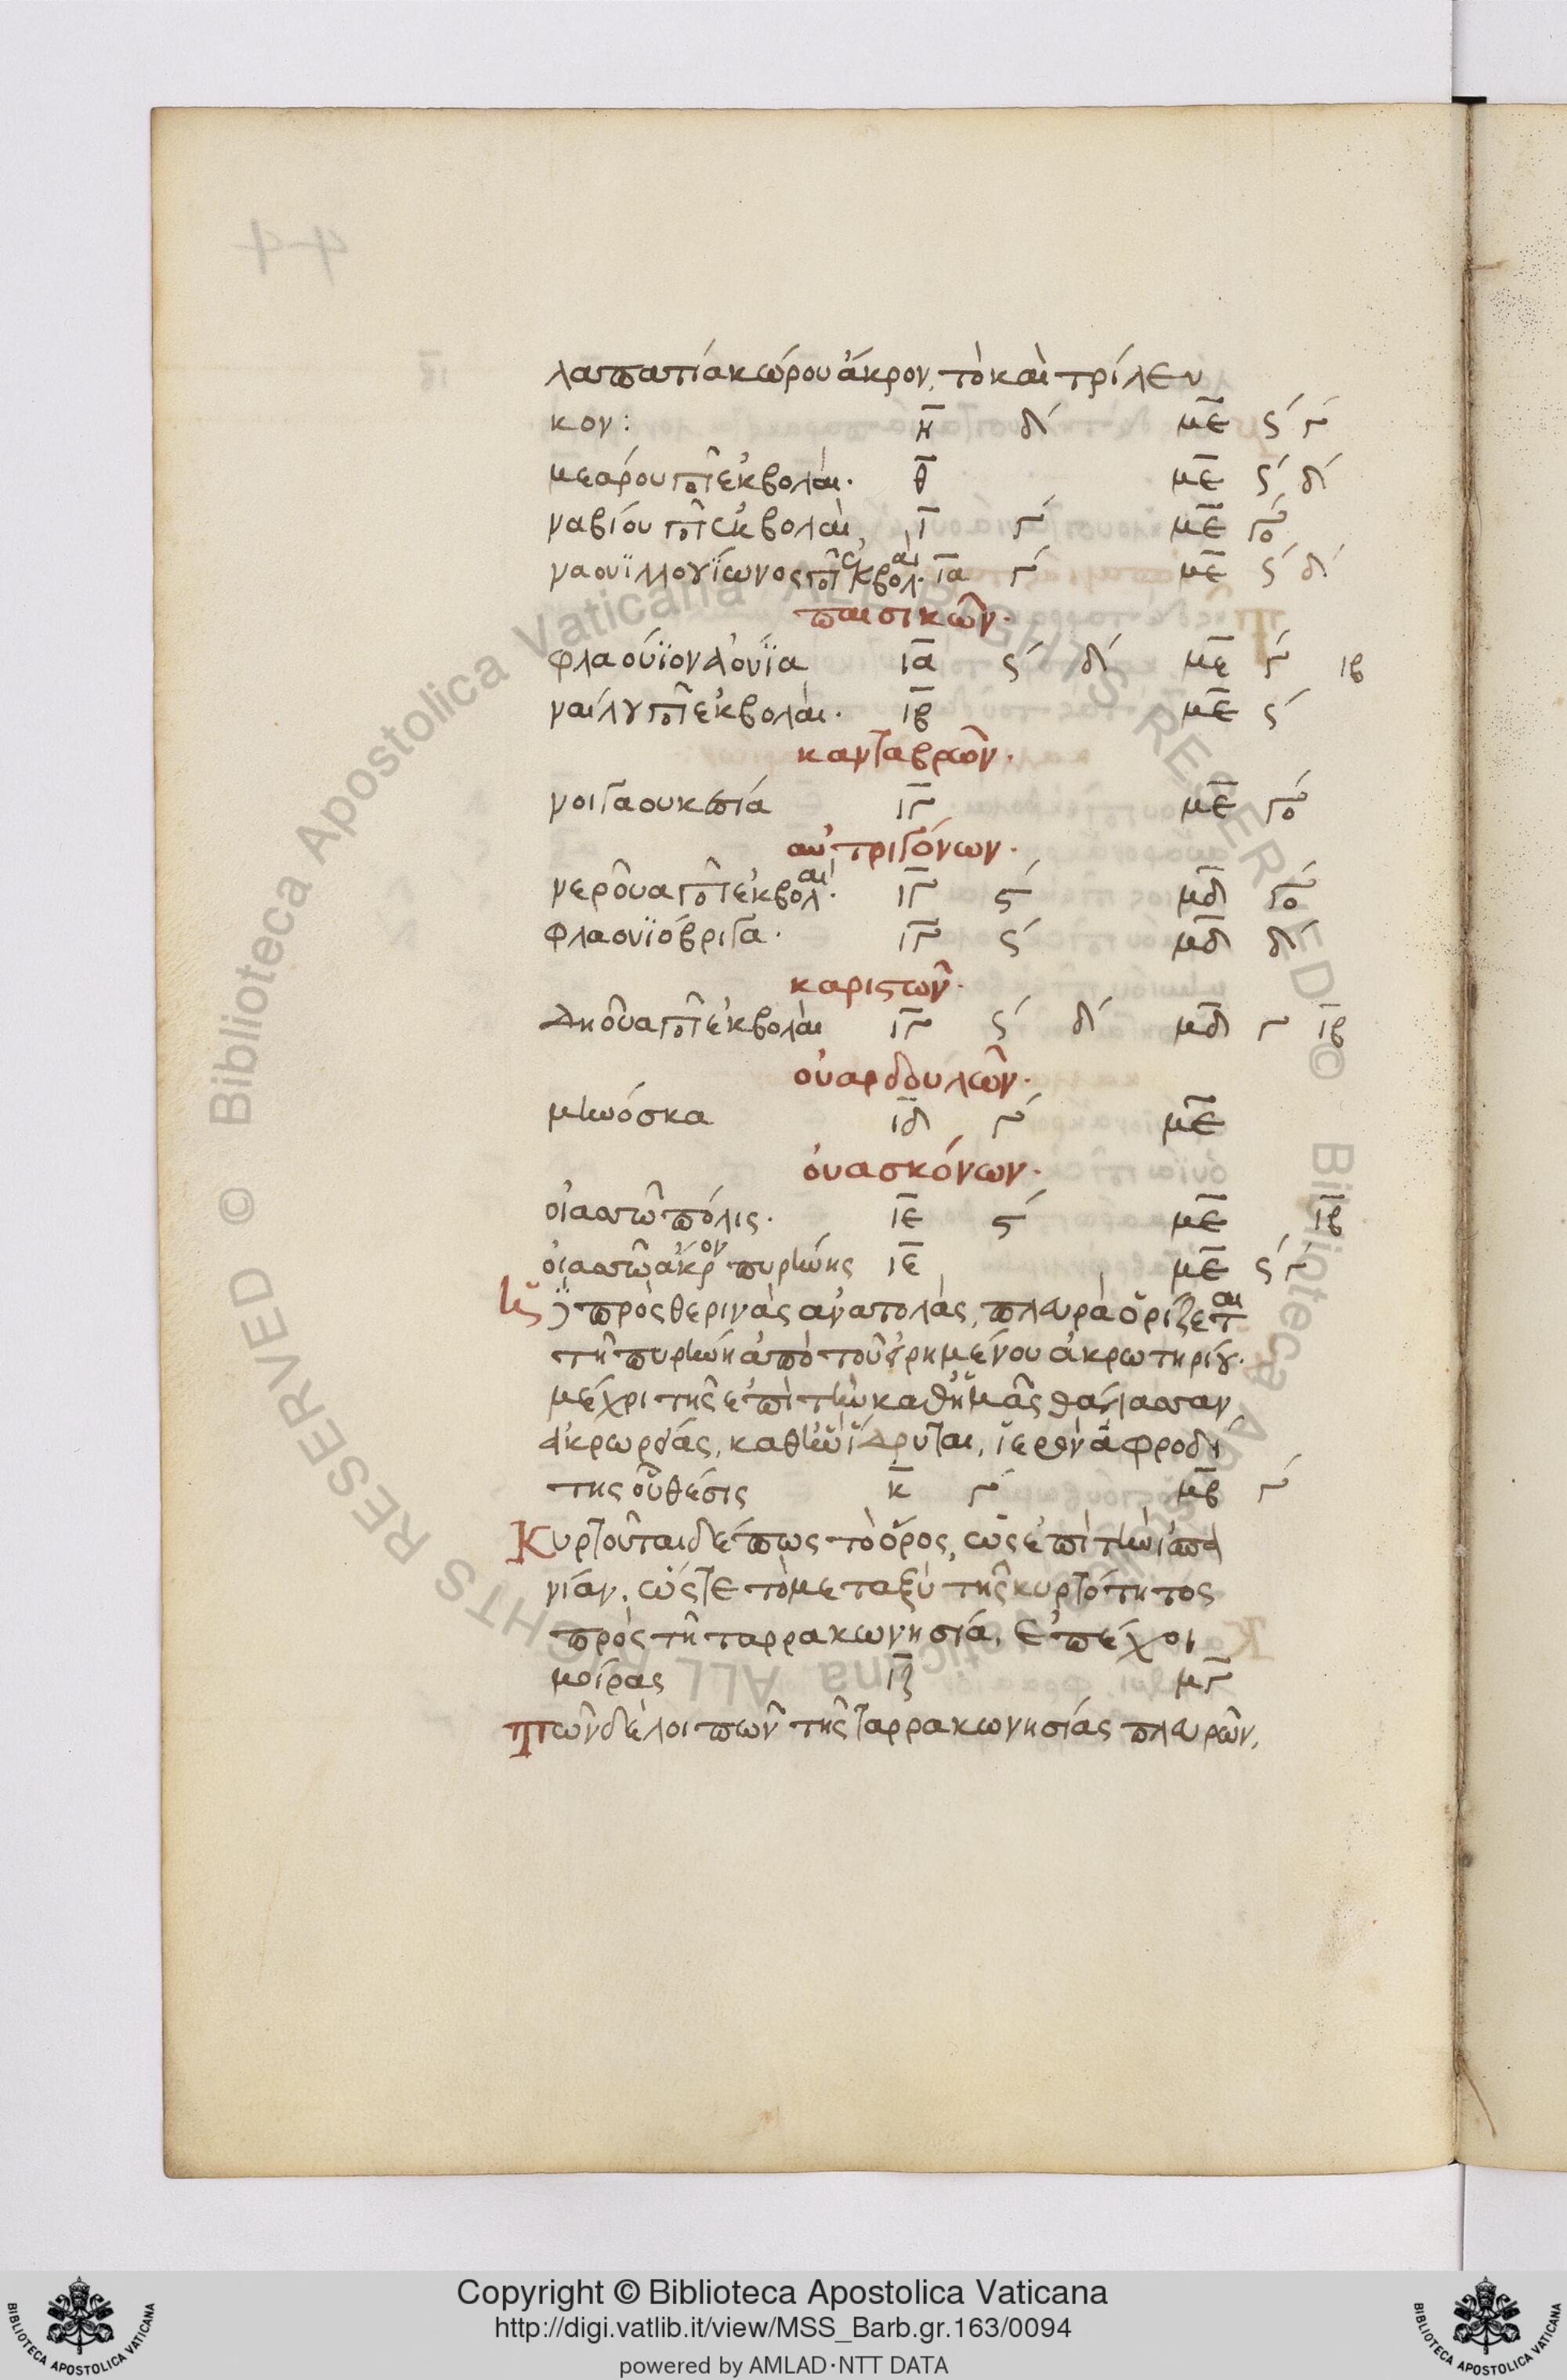 λαπατιακώρου ἄκρον, τὸ καὶ τρίλευ
κον: η̅ δ́ μ̅ε̅ ς́ γ́
μεάρου ποτ ἐκβολαί. θ̅ μ̅ε̅ ς́ δ́
ναβίου ποτ ἐκβολαὶ ι̅ γ́ μ̅ε̅ γό
ναουϊλλογϊίωνος ποτ ἐκβολαὶ. ι̅α̅ γ́ μ̅ε̅ ς́ δ́
παισικῶν.
φλαούϊοναουΐα ι̅α̅ ς́ δ́ μ̅ε̅ γ́ ιβ
ναίλου ποτ ἐκβολαί. ι̅β̅ μ̅ε̅ ς́
κανταβρῶν.
νοιγαουκεσία ι̅γ̅ μ̅ε̅ γό
αὐτριγόνων.
νερούα ποτ ἐκβολαὶ. ι̅γ̅ ς́ μ̅δ̅ γό
φλαουϊόβριγα. ι̅γ̅ ς́ μ̅δ̅ δ́
καριστῶν.
δηούα ποτ ἐκβολαὶ ι̅γ̅ ς́ δ́ μ̅δ̅ γ ι̅β̅
οὐαρδουλῶν.
μηνόσκα ι̅δ̅ γ́ μ̅ε̅
οὐασκόνων.
οἰασσὼ πόλις. ι̅ε̅ ς́ μ̅ε̅ ι̅β̅
οἰασσὼ ἄκρον πυρήνης ι̅ε̅ μ̅ε̅ ς́ γ́
πρὸς θερινὰς ἀνατολὰς, πλευρὰ ὁρίζεται
τῆ πυρήνη ἀπὸ τοῦ εἰρημένου ἀκρωτηρίου.
μέχρι τῆς ἐπὶ τὴν καθ ἡμᾶς θάλασσαν
ἀκρωρείας, καθ ἣν ἵδρυται, ἱερὸν ἀφροδί
της οὗ θέσις κ̅ γ́ μ̅β̅ γ́
Κυρτοῦται δέ πως τὸ ὄρος, ὡς ἐπὶ τὴν ἱσπα
νίαν. ὥστε τὸ μεταξὺ τῆς κυρτότητος
πρὸς τῆ ταρρακωνησία, ἐπέχοι
μοίρας ι̅ζ̅ μ̅γ̅
Τῶν δὲ λοιπῶν τῆς ταρρακωνησίας πλευρῶν,
Copyright © Biblioteca Apostolica Vaticana
http://digi.vatlib.it/view/MSS_Barb.gr.163/0094
powered by AMLAD·NTT DATA
© Biblioteca Apostolica Vaticana ALL RIGHTS RESERVED
© Biblioteca Apostolica Vaticana ALL RIGHTS RESERVED
BIBLIOTECA APOSTOLICA VATICANA
BIBLIOTECA APOSTOLICA VATICANA